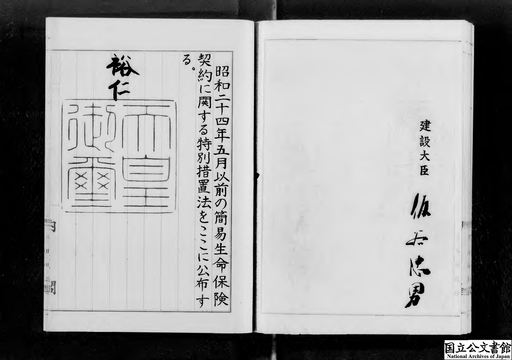 建設大臣 仮谷忠男
昭和二十四年五月以前の簡易生命保険
契約に関する特別措置法をここに公布す
る。
裕仁
天皇
御璽
国立公文書館
National Archives of Japan